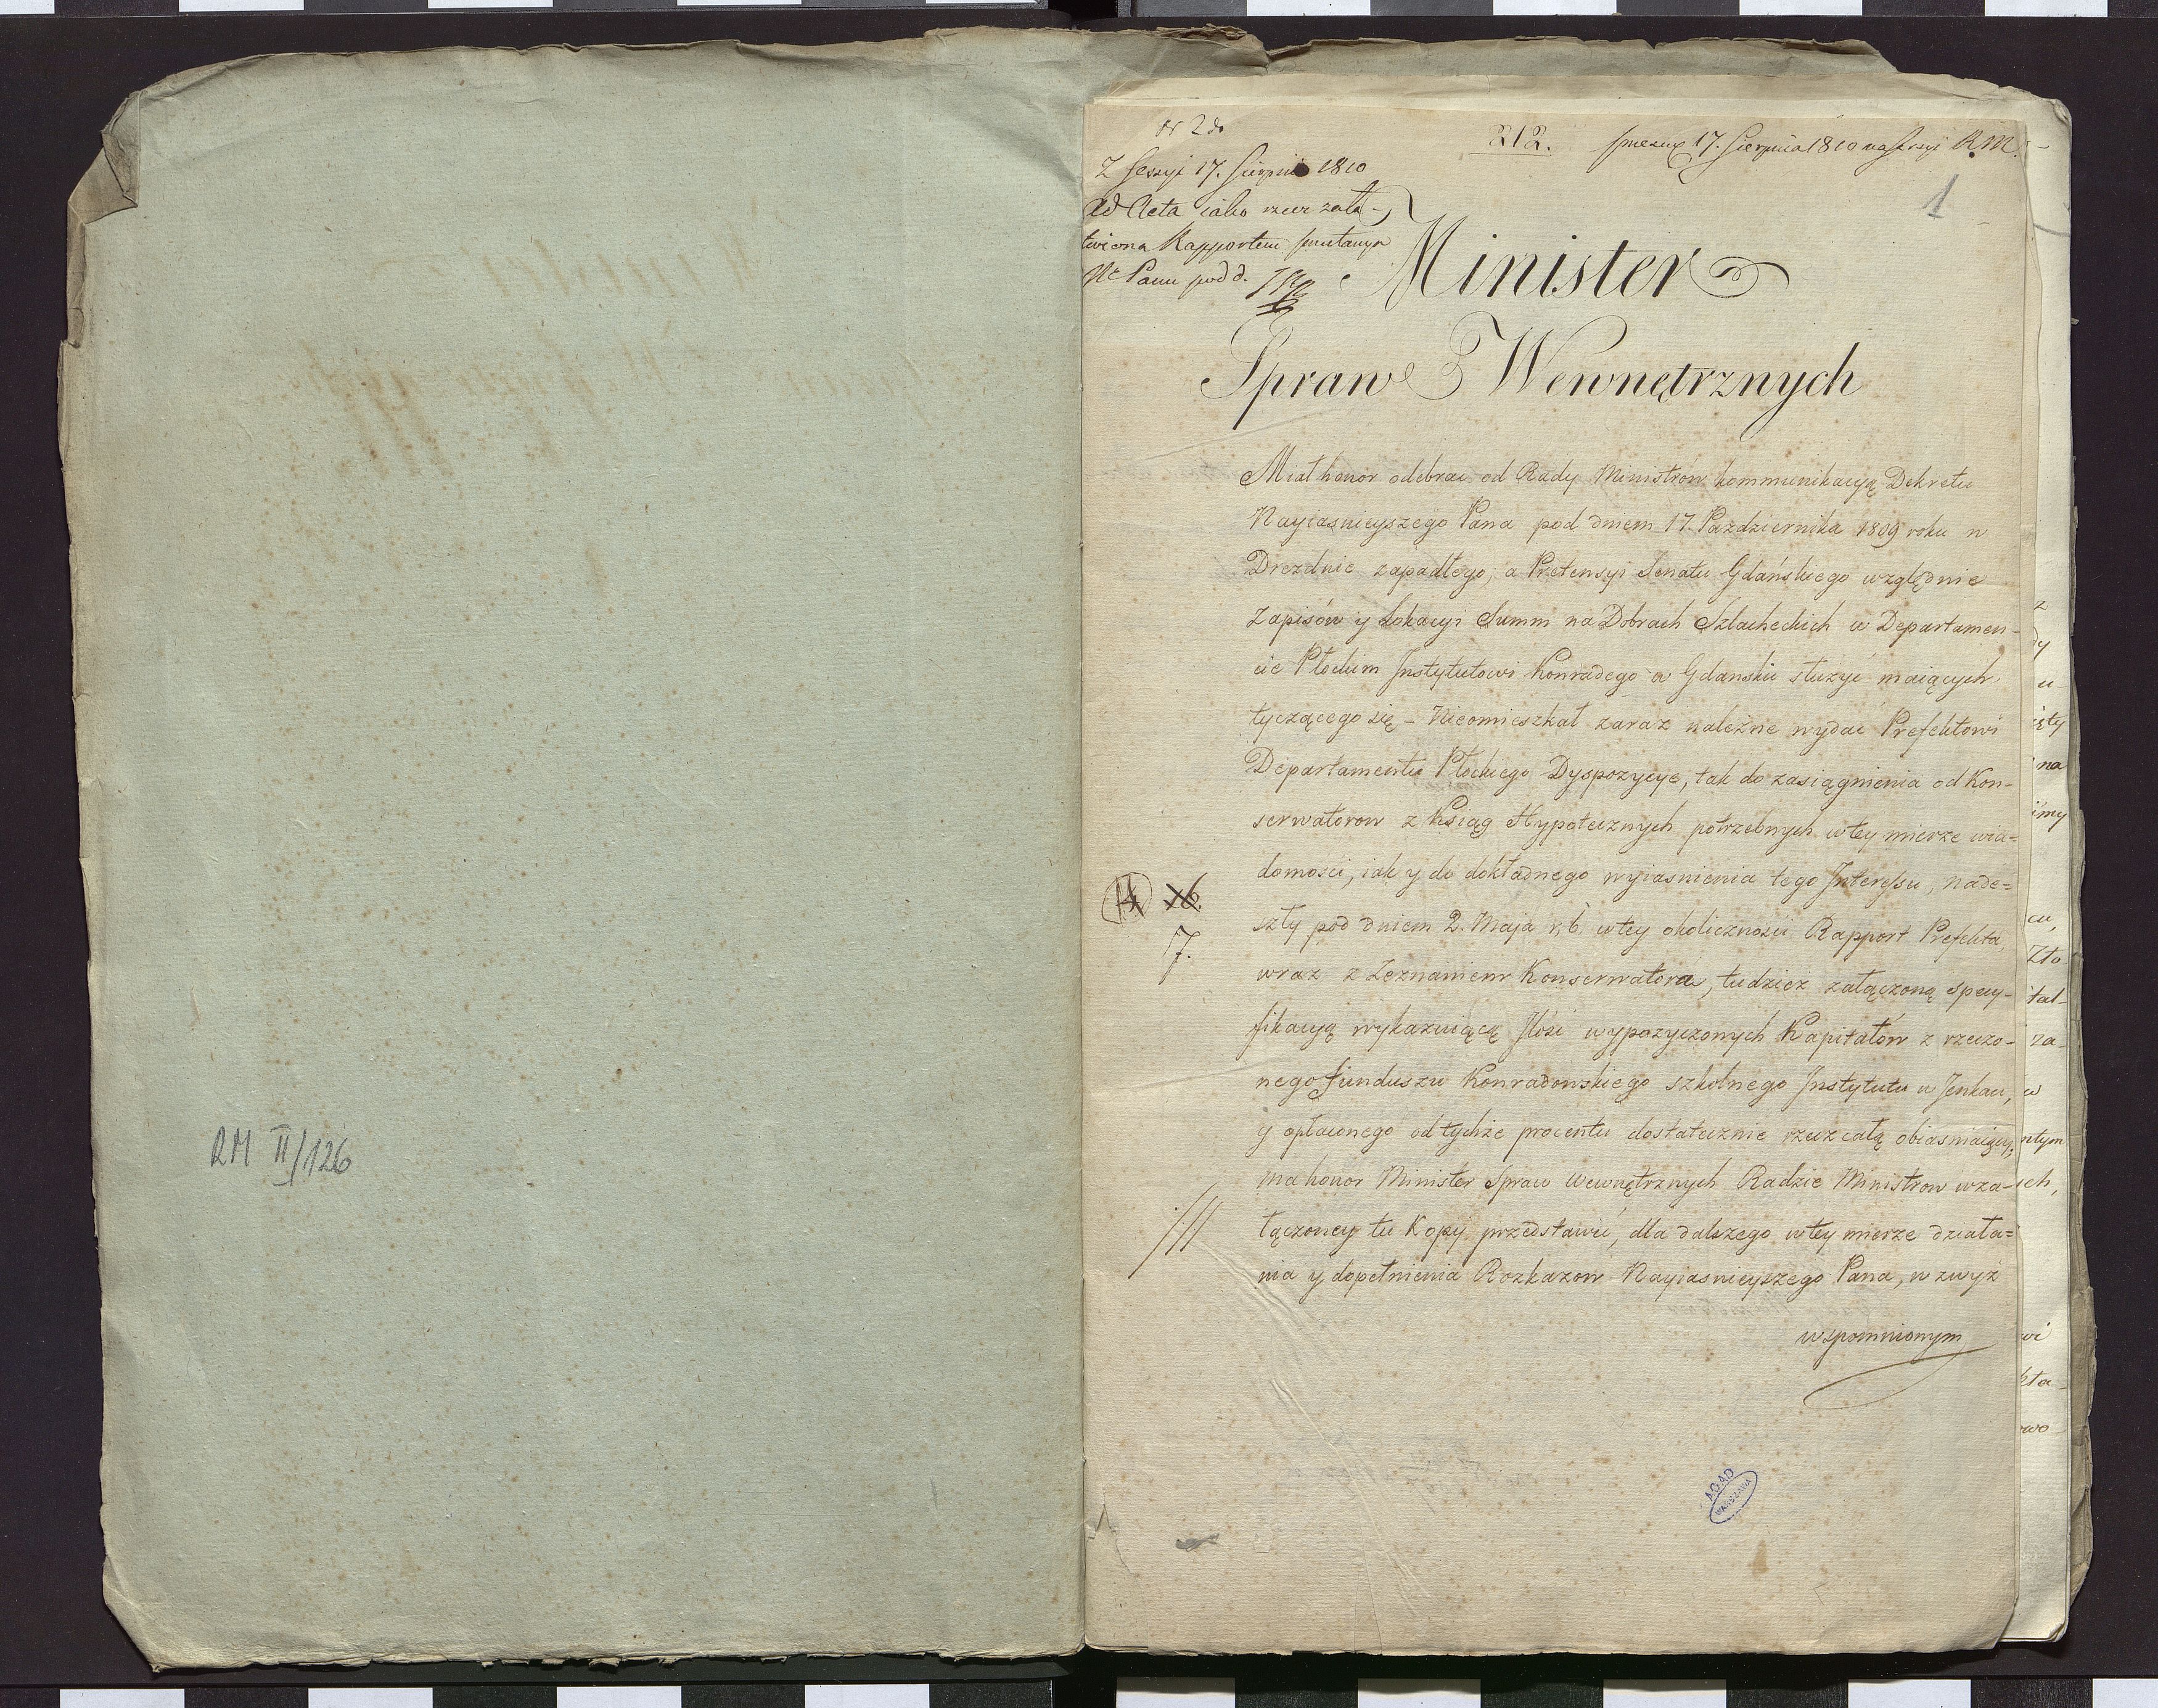 RM II/126
№ 2do
212.
17. Sierpnia 1810 na Sessyi R.M.
1
Z Sessyi 17. Sierpnia 1810
Ad Acta iako rzecz zała-
twiona Rapportem
Panu pod d.
Minister
Spraw Wewnętrznych
Miał honor odebrac od Rady Ministrów kommunikacyą Dekretu
Nayiasnieyszego Pana pod dniem 17. Pazdziernika 1809 roku w
Dreznie zapadłego, a Pretensyi Senatu Gdańskiego względnie
Zapisów y Lokacyi Summ na Dobrach Szlacheckich w Departamen-
cie Płockim Instytutowi Konradego w Gdansku służyć maiących
tyczącego się – Nieomieszkał zaraz należne wydać Prefektowi
Departamentu Płockiego Dyspozycye, tak do zasiągnienia od Kon-
serwatorow z Ksiąg Hypotecznych potrzebnych w tey mierze wia=
domosci, iak y do dokładnego wyiasnienia tego Interessu, nade=
szły pod dniem 2. Maja r. b. w tey okolicznosci Rapport Prefekta,
wraz z Zeznaniem Konserwatora, tudziez załączoną specy-
fikacyą wykazuiącą Ilość wypozyczonych Kapitałów z rzeczo-
nego funduszu Konradowskiego szkolnego Instytutu w Jenkau,
y opłaconego od tychże procentu dostatecznie rzecz całą obiasniaiący,
ma honor Minister Spraw Wewnętrznych Radzie Ministrow w za-
łączoney tu Kopy przedstawić, dla dalszego w tey mierze działa=
nia y dopełnienia Rozkazow Nayiasnieyszego Pana, w zwyż
wspomnionym
7.
AGAD
WARSZAWA